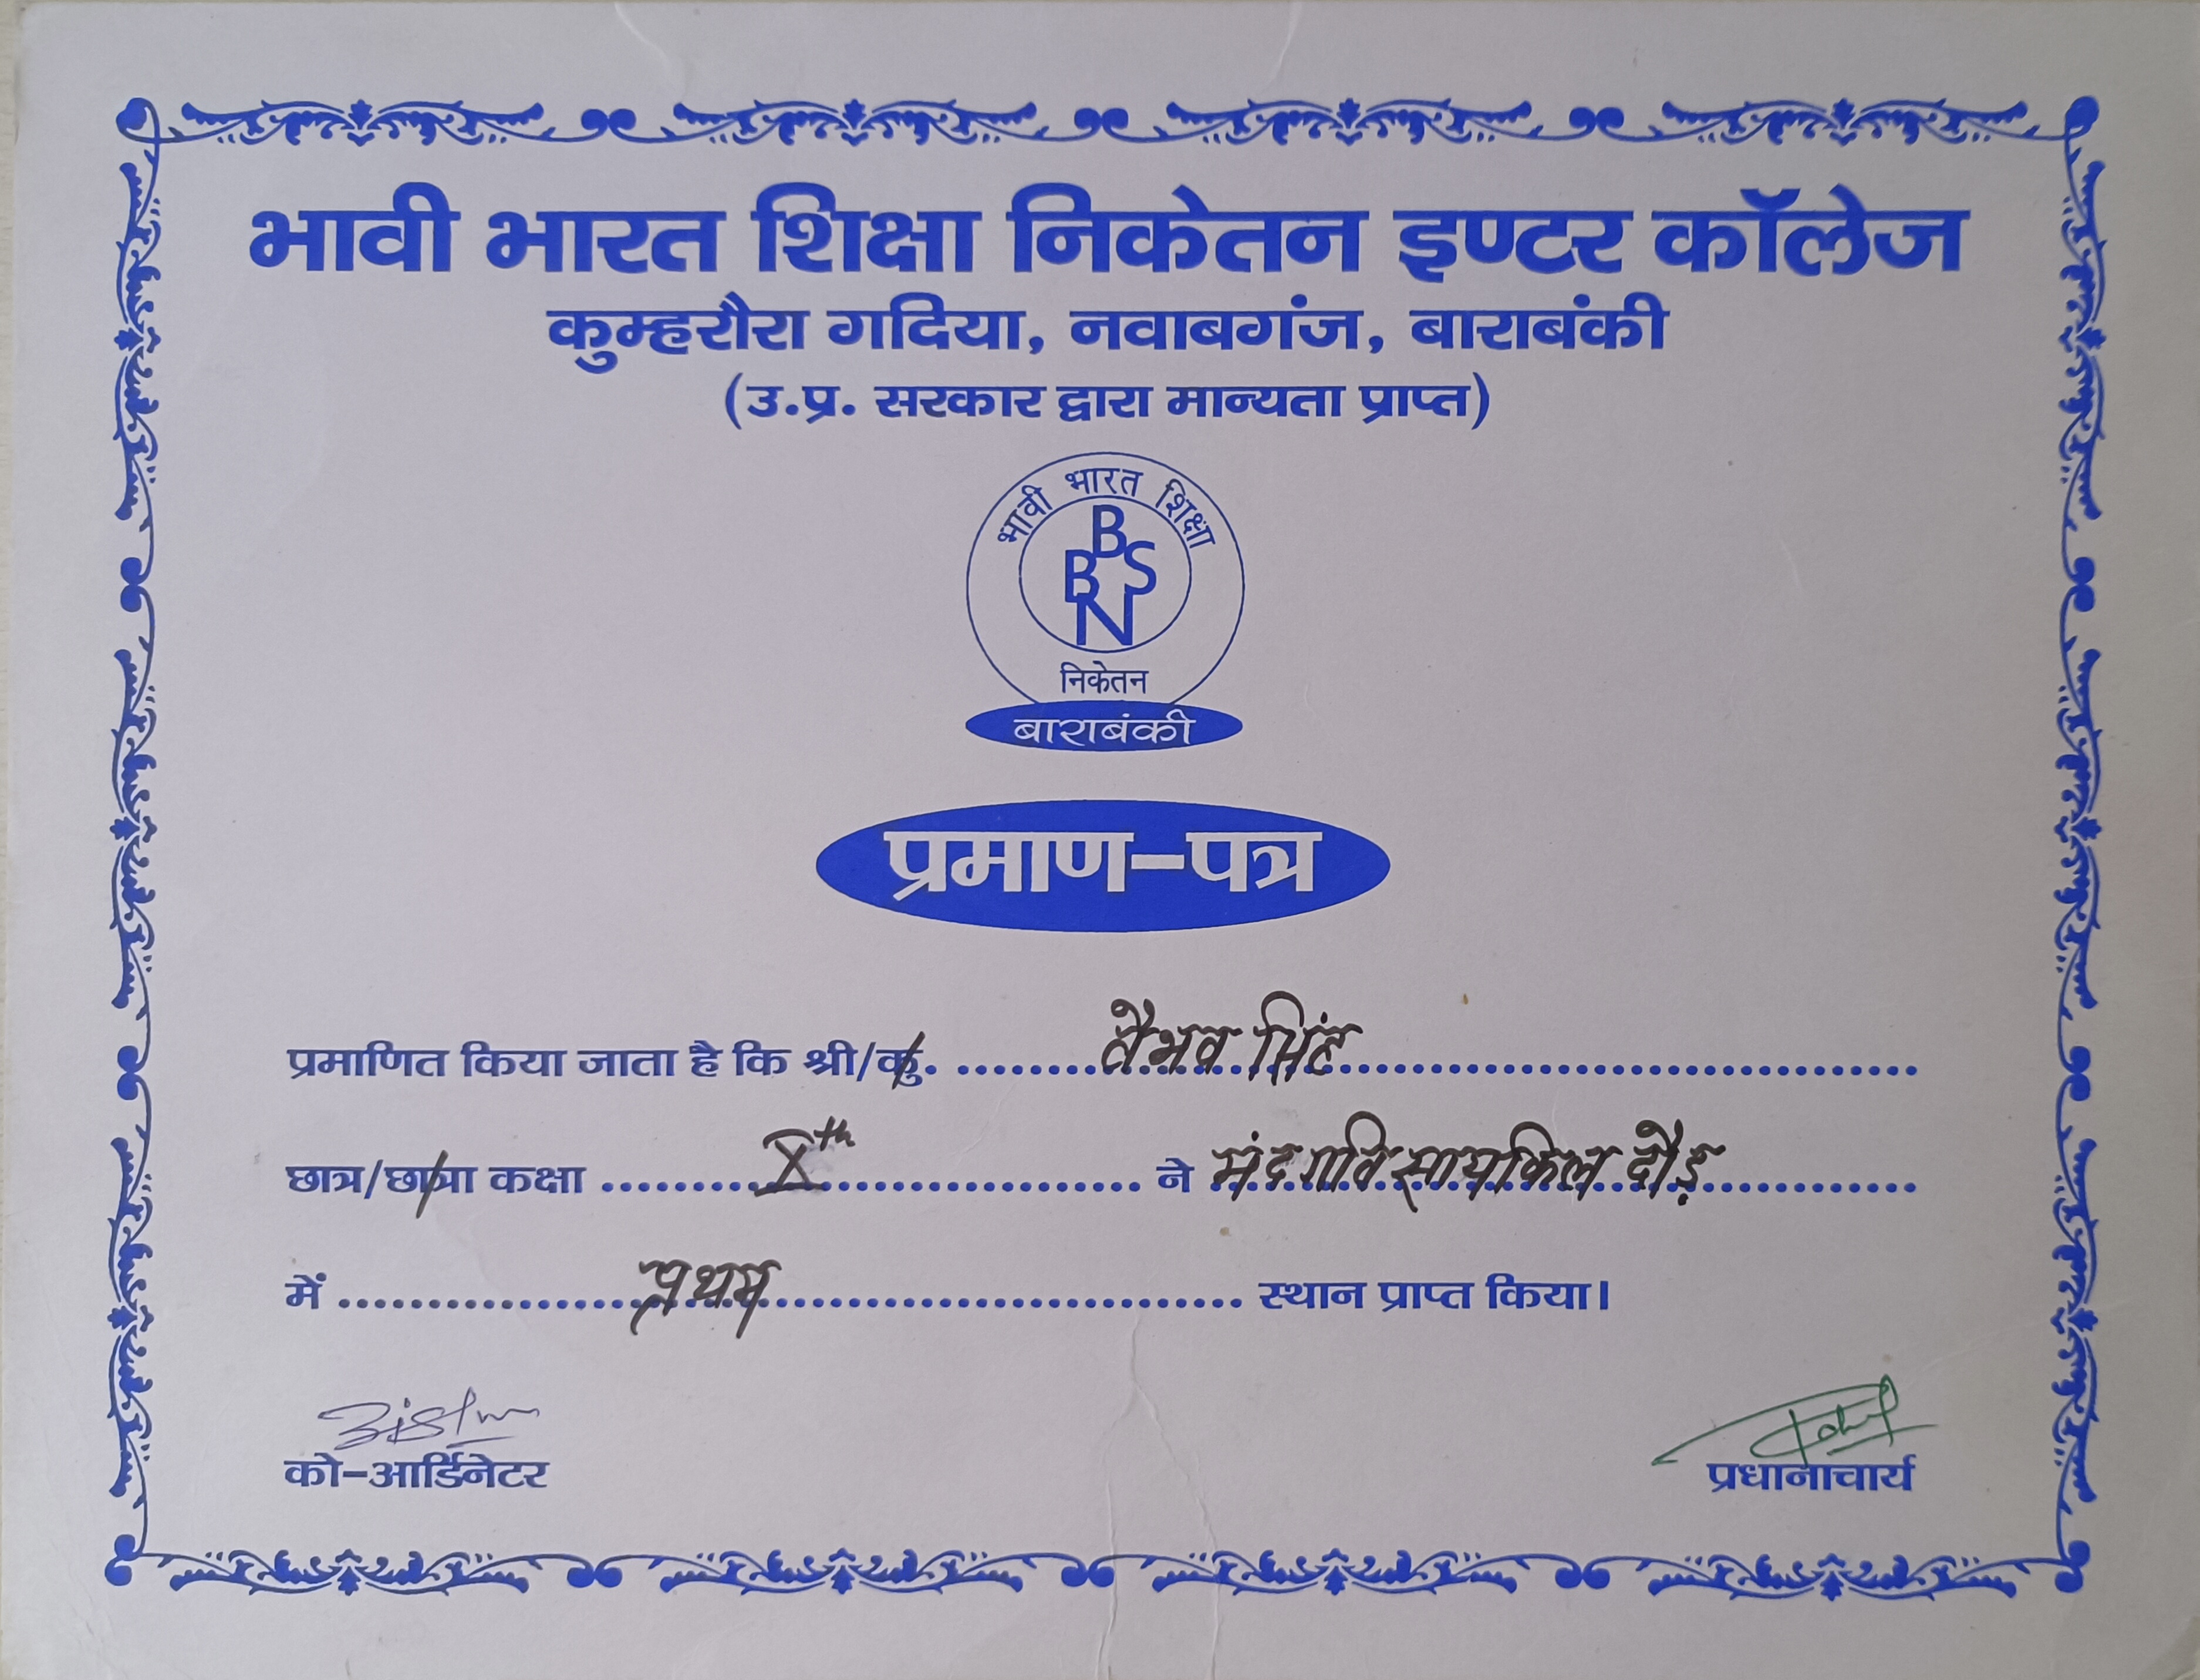 भावी भारत शिक्षा निकेतन इण्टर कॉलेज
कुम्हरौरा गदिया, नवाबगंज, बाराबंकी
(उ.प्र. सरकार द्वारा मान्यता प्राप्त)
भावी भारत शिक्षा
B
B S
N
निकेतन
बाराबंकी
प्रमाण-पत्र
प्रमाणित किया जाता है कि श्री/कु. वैभव सिंह
छात्र/छात्रा कक्षा Xth ने मंद गति सायकिल दौड़
में प्रथम स्थान प्राप्त किया।
को-आर्डिनेटर
प्रधानाचार्य